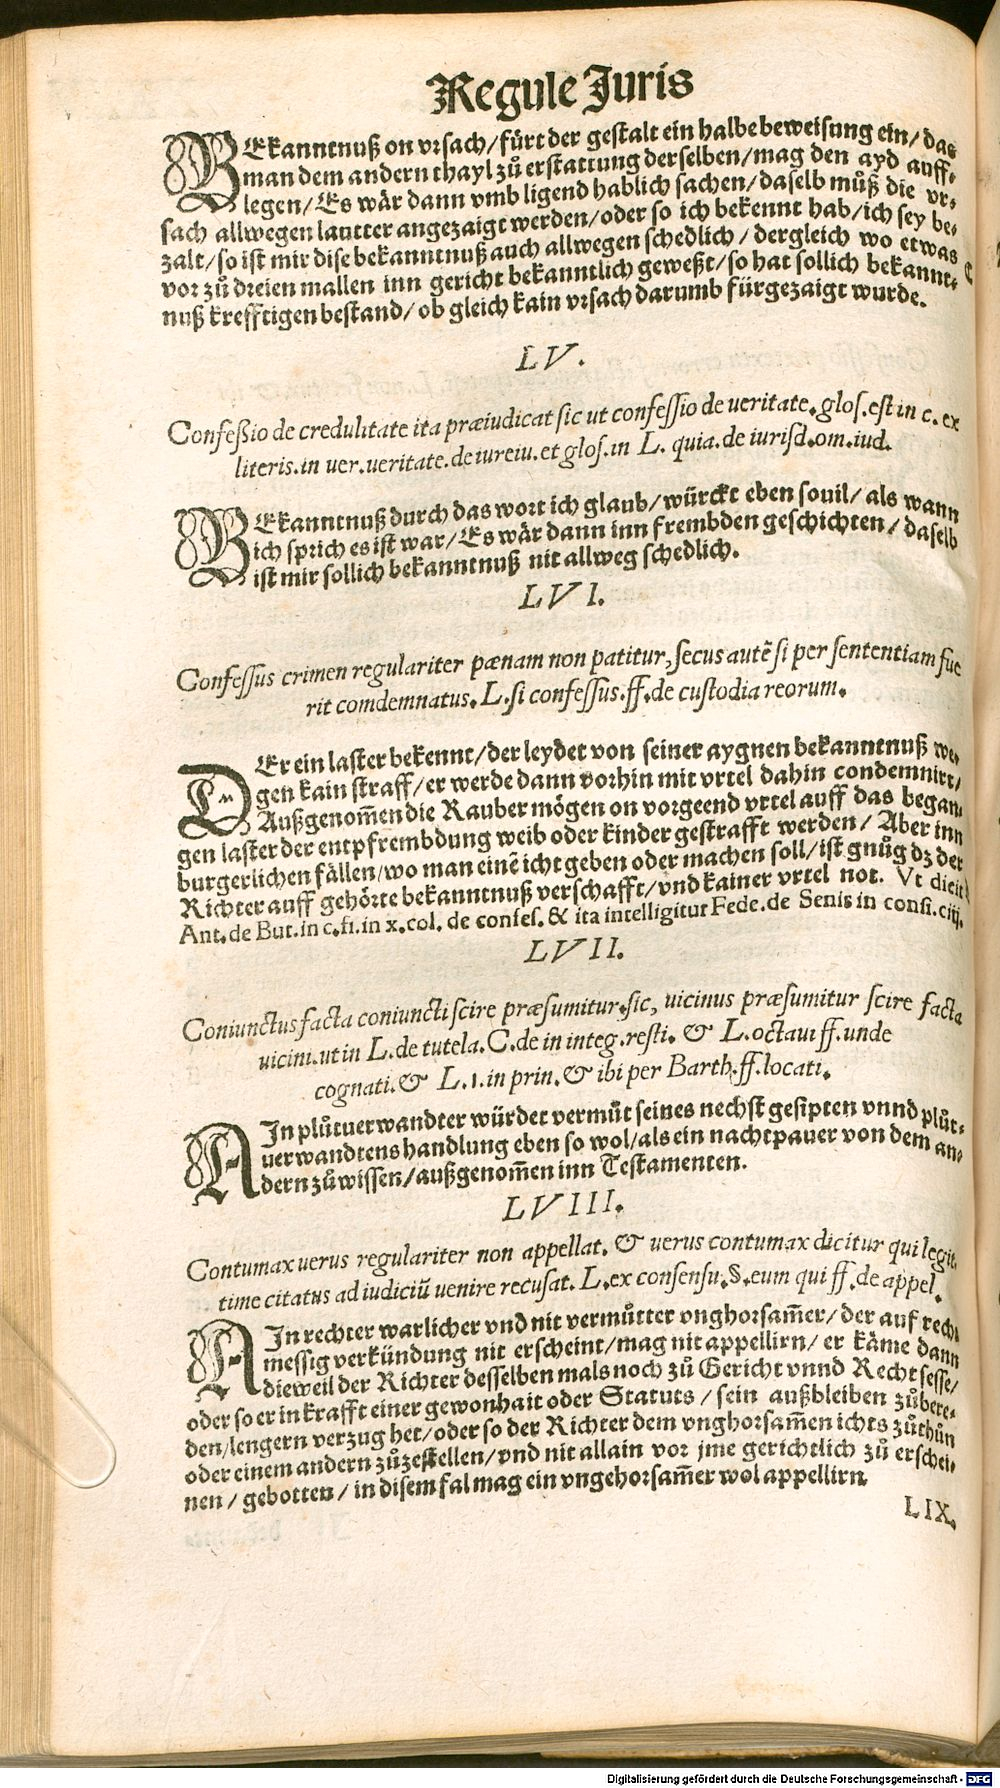 Regule Juris
BEkanntnuß on vrsach/ fürt der gestalt ein halbe beweisung ein/ das
man dem andern thayl zů erstattung derselben/ mag den ayd auff⸗
legen/ Es wär dann vmb ligend hablich sachen/ daselb můß die vr⸗
sach allwegen lautter angezaigt werden/ oder so ich bekennt hab/ ich sey be⸗
zalt/ so ist mir dise bekanntnuß auch allwegen schedlich/ dergleich wo etwas
vor zů dreien mallen inn gericht bekanntlich geweßt/ so hat sollich bekannt⸗
nuß krefftigen bestand/ ob gleich kain vrsach darumb fürgezaigt wurde.
LV.
Confeßio de credulitate ita præiudicat sic ut confessio de ueritate. glos. est in c. ex
literis. in uer. ueritate. de iureiu. et glos. in L. quia. de iurisd. om. iud.
BEkanntnuß durch das wort ich glaub/ würckt eben souil/ als wann
ich sprich es ist war/ Es wär dann inn frembden geschichten/ daselb
ist mir sollich bekanntnuß nit allweg schedlich.
LVI.
Confessus crimen regulariter pænam non patitur, secus autē si per sententiam fue
rit comdemnatus. L. si confessus. ff. de custodia reorum.
DEr ein laster bekennt/ der leydet von seiner aygnen bekanntnuß we⸗
gen kain straff/ er werde dann vorhin mit vrtel dahin condemnirt/
Außgenom̄en die Rauber mögen on vorgeend vrtel auff das began⸗
gen laster der entpfrembdung weib oder kinder gestrafft werden/ Aber inn
burgerlichen fällen/ wo man einē icht geben oder machen soll/ ist gnůg dz der
Richter auff gehörte bekanntnuß verschafft/ vnd kainer vrtel not. Vt dicit
Ant. de But. in c. fi. in x. col. de confes. & ita intelligitur Fede. de Senis in consi. ciij.
LVII.
Coniunctus facta coniuncti scire præsumitur. sic, uicinus præsumitur scire facta
uicini. ut in L. de tutela. C. de in integ. resti. & L. octaui ff. unde
cognati. & L. 1. in prin. & ibi per Barth. ff. locati.
AIn plůtuerwandter würdet vermůt seines nechst gesipten vnnd plůt⸗
uerwandtens handlung eben so wol/ als ein nachtpauer von dem an⸗
dern zůwissen/ außgenom̄en inn Testamenten.
LVIII.
Contumax uerus regulariter non appellat. & uerus contumax dicitur qui legit.
time citatus ad iudiciū uenire recusat. L. ex consensu. §. eum qui ff. de appel.
AIn rechter warlicher vnd nit vermůtter vnghorsam̄er/ der auf recht
messig verkündung nit erscheint/ mag nit appellirn/ er käme dann
dieweil der Richter desselben mals noch zů Gericht vnnd Recht sesse/
oder so er in krafft einer gewonhait oder Statuts/ sein außbleiben zůbere⸗
den/ lengern verzug het/ oder so der Richter dem vnghorsam̄en ichts zůthůn
oder einem andern zůzestellen/ vnd nit allain vor jme gerichtlich zů erschei⸗
nen/ gebotten/ in disem fal mag ein vngehorsam̄er wol appellirn.
LIX.
Digitalisierung gefördert durch die Deutsche Forschungsgemeinschaft - DFG